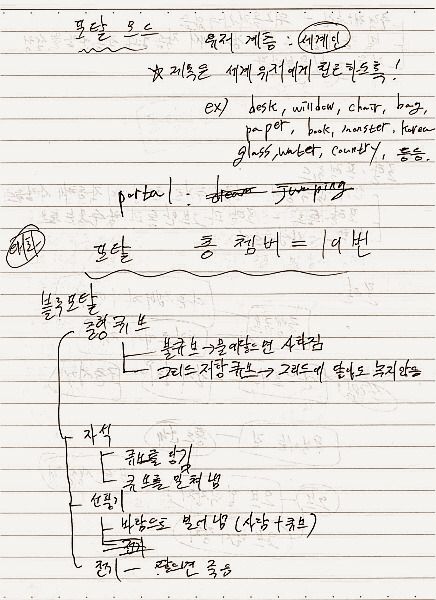 포탈 모드
유저 계층 : 세계인
☆ 제목은 세계 유저에게 컨트하도록!
ex) desk, willdow, chair, bag,
paper, book, monster, Korea
glass, water, country, 등등
portal : dream jumping
포탈 총 쳄버 = 19번
블루포탈
중형큐브
불큐브 → 물에닿으면 사라짐
그리드저항큐브 → 그리드에 닿아도 녹지않음
자석
큐브를 당김
큐브를 밀쳐냄
선풍기
바람으로 밀어냄 (사람+큐브)
전기
전기 — 닿으면 죽음